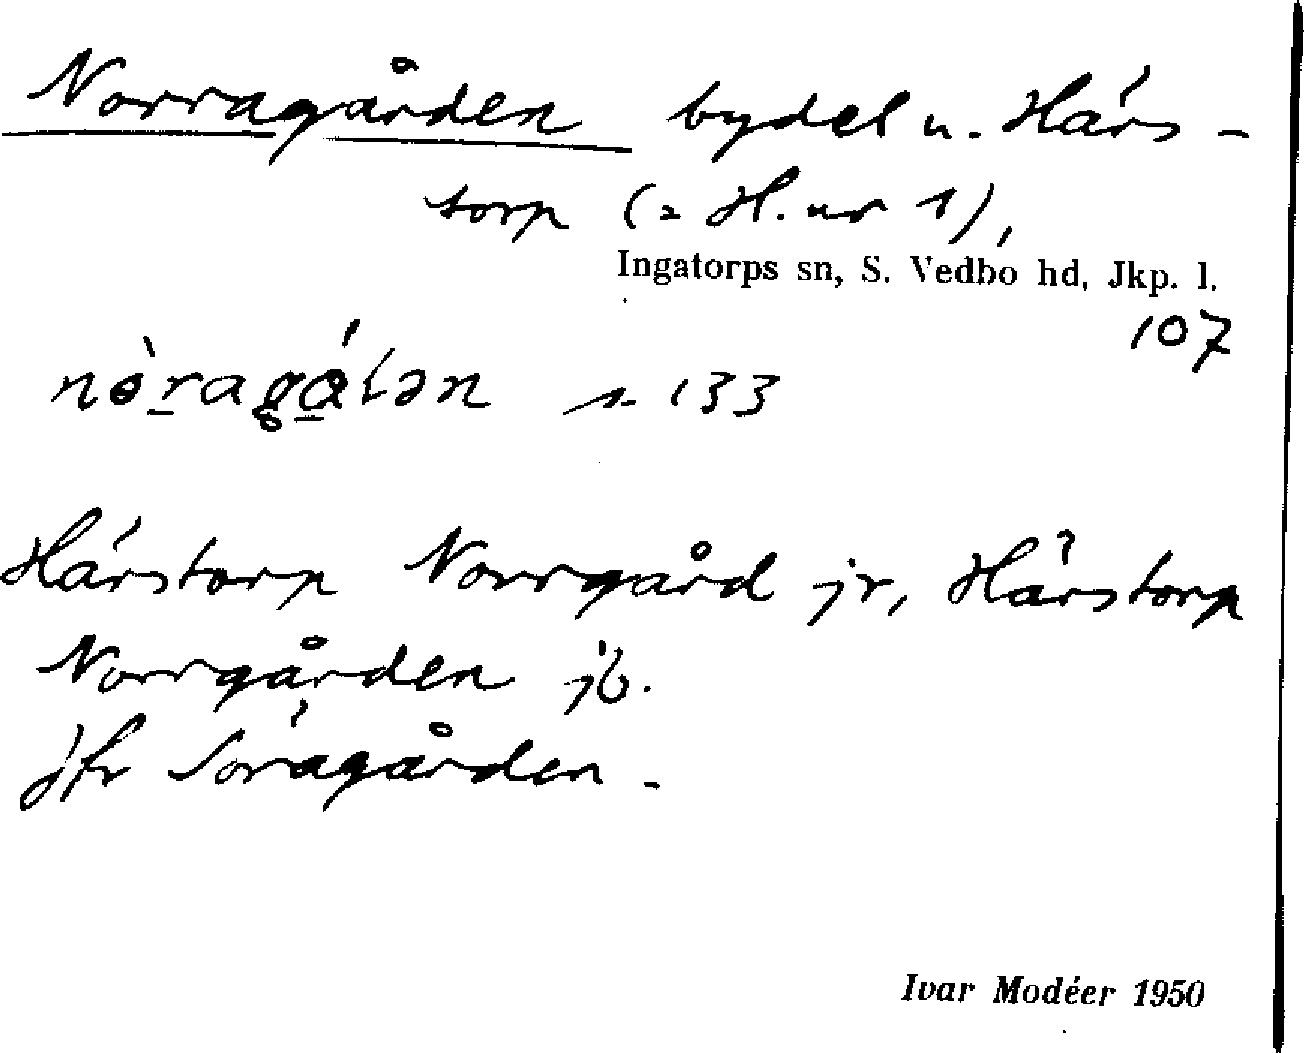 Norragården bydel u. Hårs-
torp (= H. nr 1),
Ingatorps sn, S. Vedbo hd, Jkp. l.
107
s. 133
Hårstorp Norrgård jr, Hårstorp
Norrgården jb.
Jfr Söragården.
Ivar Modéer 1950